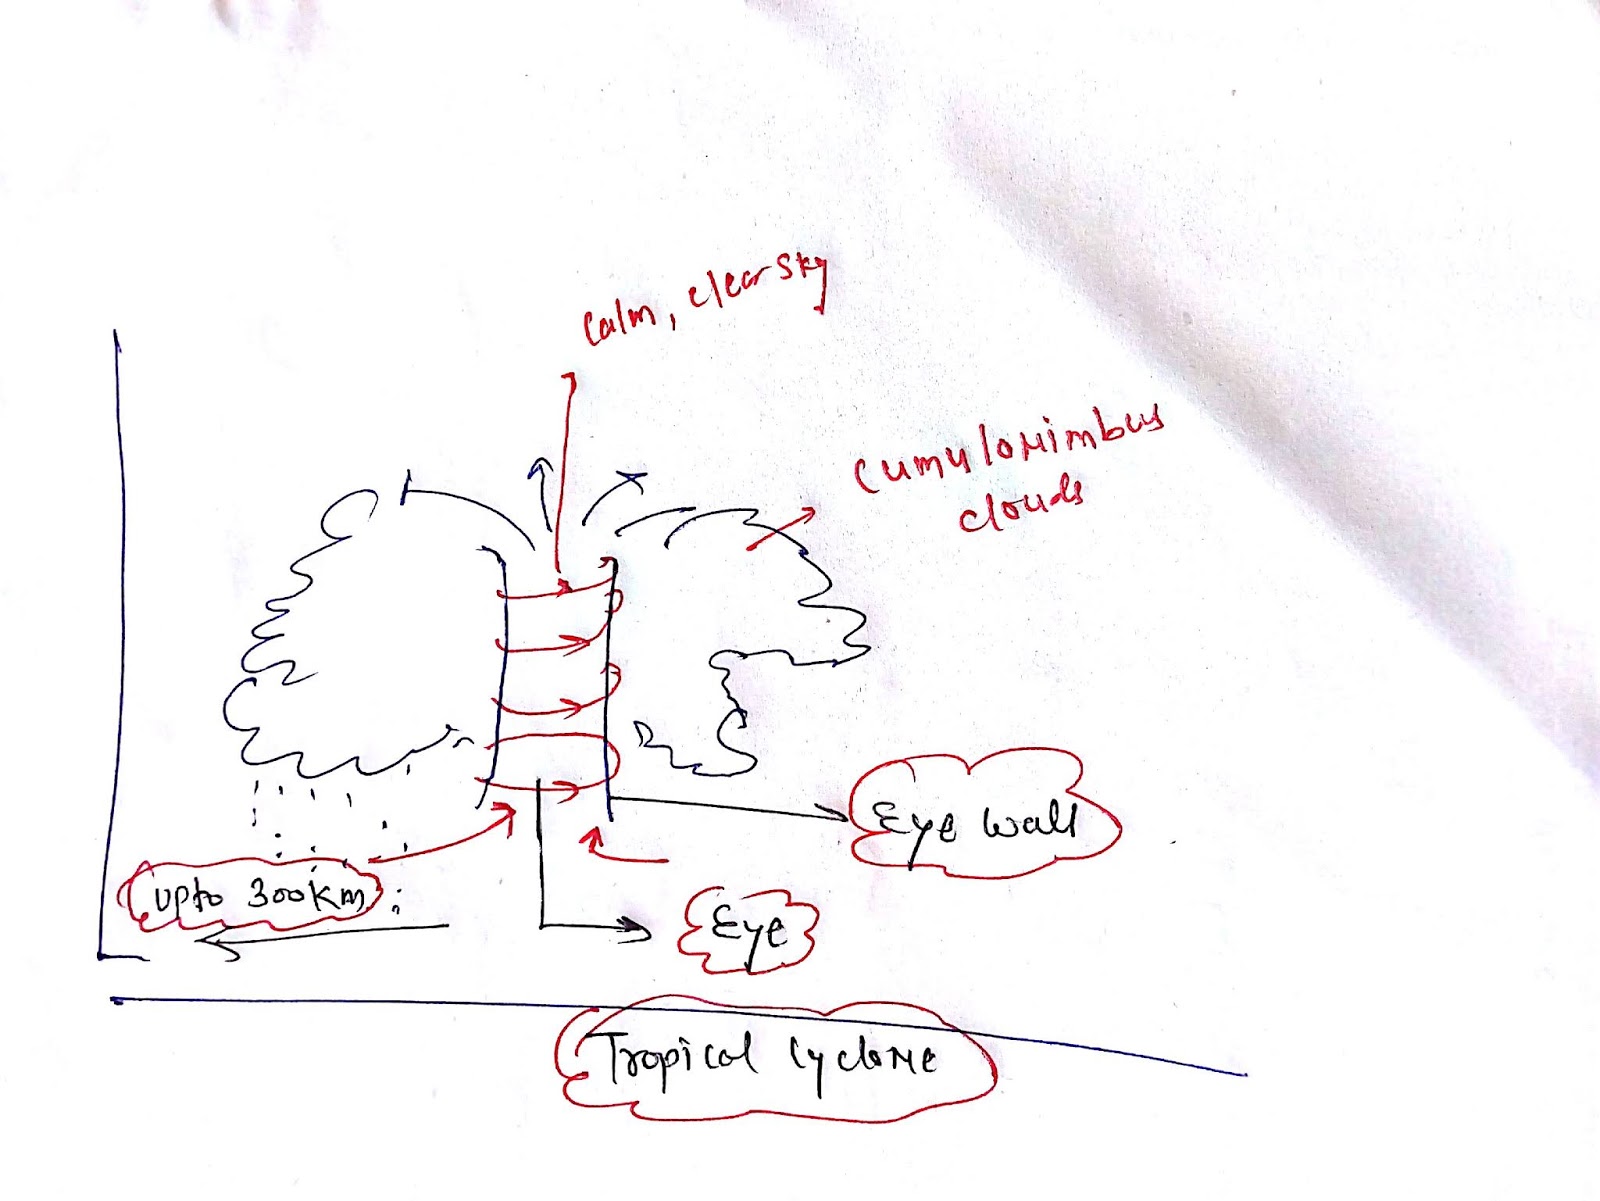 calm, clear sky
cumulonimbus
clouds
Eye wall
upto 300km
Eye
Tropical Cyclone